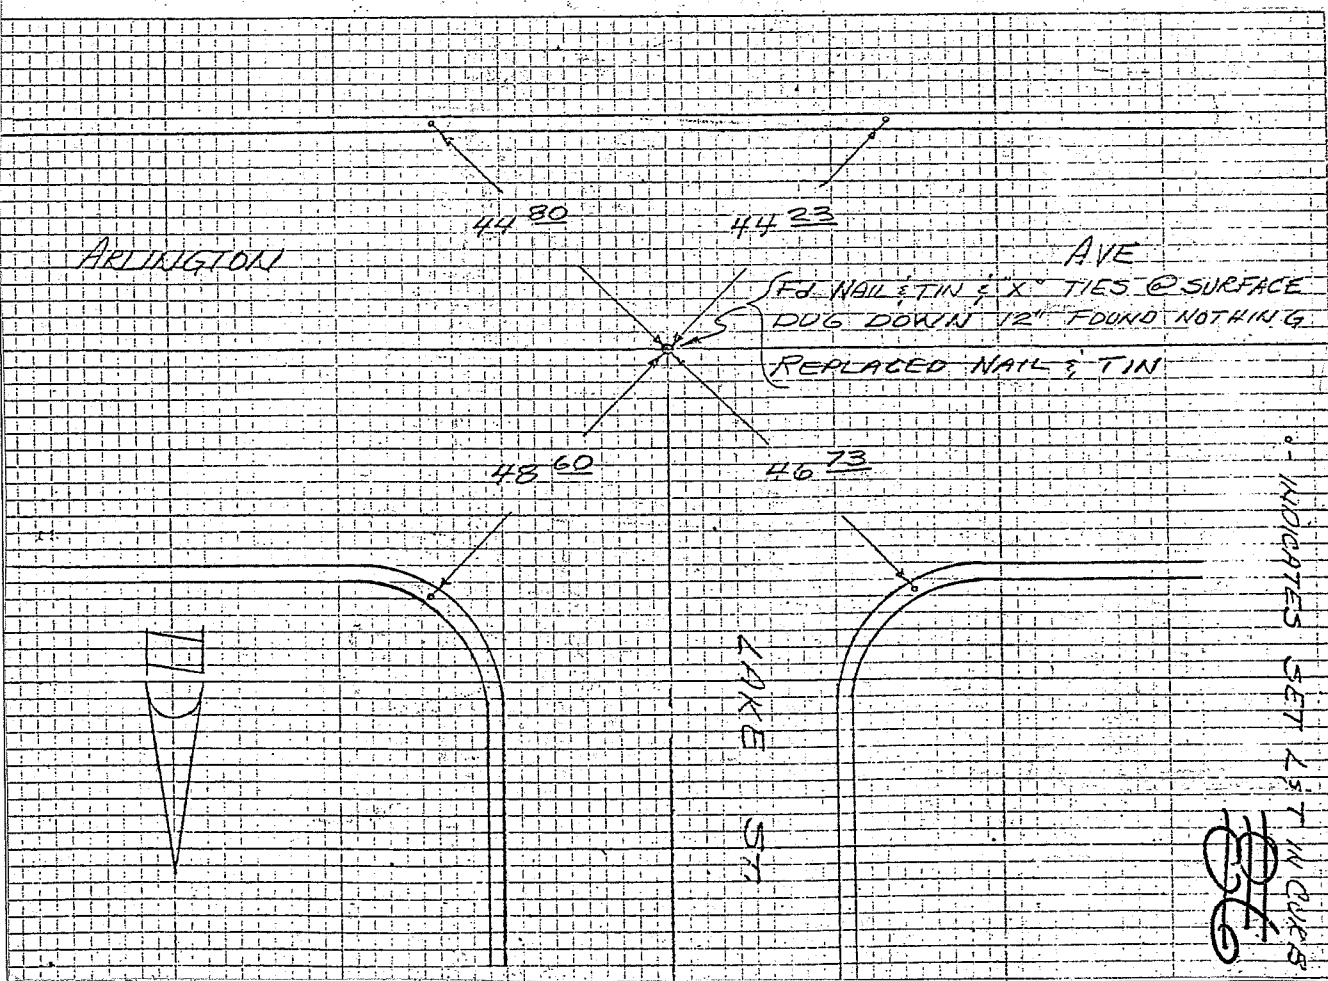 44 80
44 23
ARLINGTON
AVE
Fd NAIL & TIN & "X" TIES @ SURFACE
DUG DOWN 12" FOUND NOTHING
REPLACED NAIL & TIN
48 60
46 73
LAKE ST.
o - INDICATES SET L&T IN CURB
N